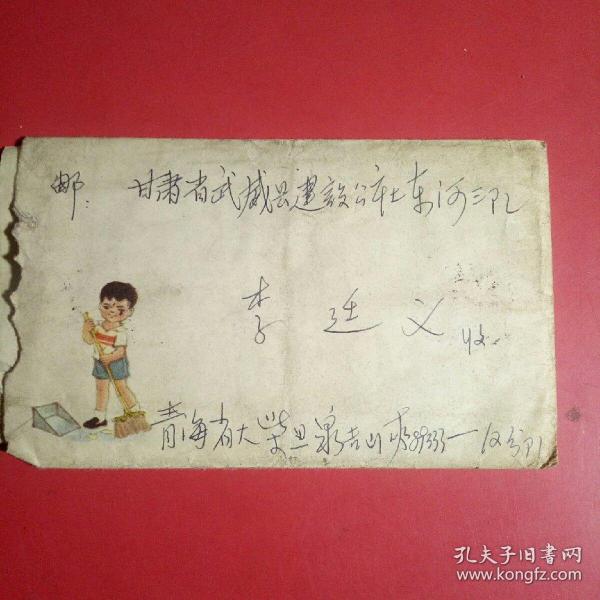 邮: 甘肃省武威县建设公社东河三队
李廷义 收
青海省大柴旦泉吉山 分队
孔夫子旧书网
www.kongfz.com